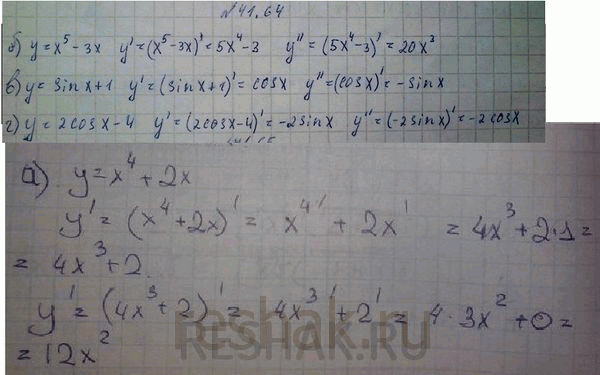 №41.64
б) y = x⁵ - 3x y' = (x⁵ - 3x)' = 5x⁴ - 3 y'' = (5x⁴ - 3)' = 20x³
в) y = sin x + 1 y' = (sin x + 1)' = cos x y'' = (cos x)' = - sin x
г) y = 2cos x - 4 y' = (2cos x - 4)' = -2sin x y'' = (-2 sin x)' = -2 cos x
а) y = x⁴ + 2x
y' = (x⁴ + 2x)' = x⁴' + 2x' = 4x³ + 2·1 =
= 4x³ + 2
y' = (4x³ + 2)' = 4x³' + 2' = 4·3x² + 0 =
RESHAK.RU
= 12x²